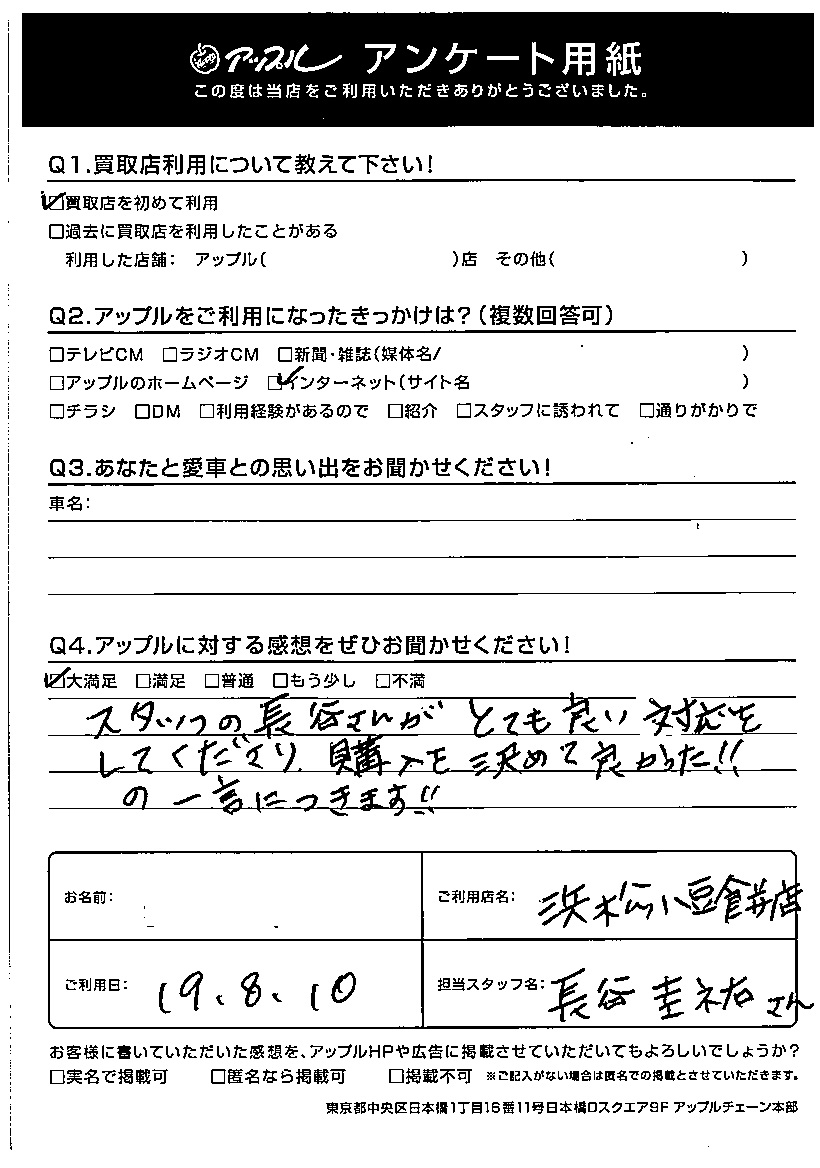 アップル アンケート用紙
この度は当店をご利用いただきありがとうございました。
Q1.買取店利用について教えて下さい!
☑買取店を初めて利用
□過去に買取店を利用したことがある
利用した店舗: アップル( )店 その他( )
Q2.アップルをご利用になったきっかけは?(複数回答可)
□テレビCM □ラジオCM □新聞・雑誌(媒体名/ )
□アップルのホームページ ☑インターネット(サイト名 )
□チラシ □DM □利用経験があるので □紹介 □スタッフに誘われて □通りがかりで
Q3.あなたと愛車との思い出をお聞かせください!
車名:
Q4.アップルに対する感想をぜひお聞かせください!
☑大満足 □満足 □普通 □もう少し □不満
スタッフの長谷さんがとても良い対応を
してくださり、購入を決めて良かった!!
の一言につきます!!
お名前:
ご利用店名: 浜松小豆餅店
ご利用日: 19.8.10
担当スタッフ名: 長谷圭祐さん
お客様に書いていただいた感想を、アップルHPや広告に掲載させていただいてもよろしいでしょうか?
□実名で掲載可 □匿名なら掲載可 □掲載不可 ※ご記入がない場合は匿名での掲載とさせていただきます。
東京都中央区日本橋1丁目16番11号日本橋Dスクエア9F アップルチェーン本部